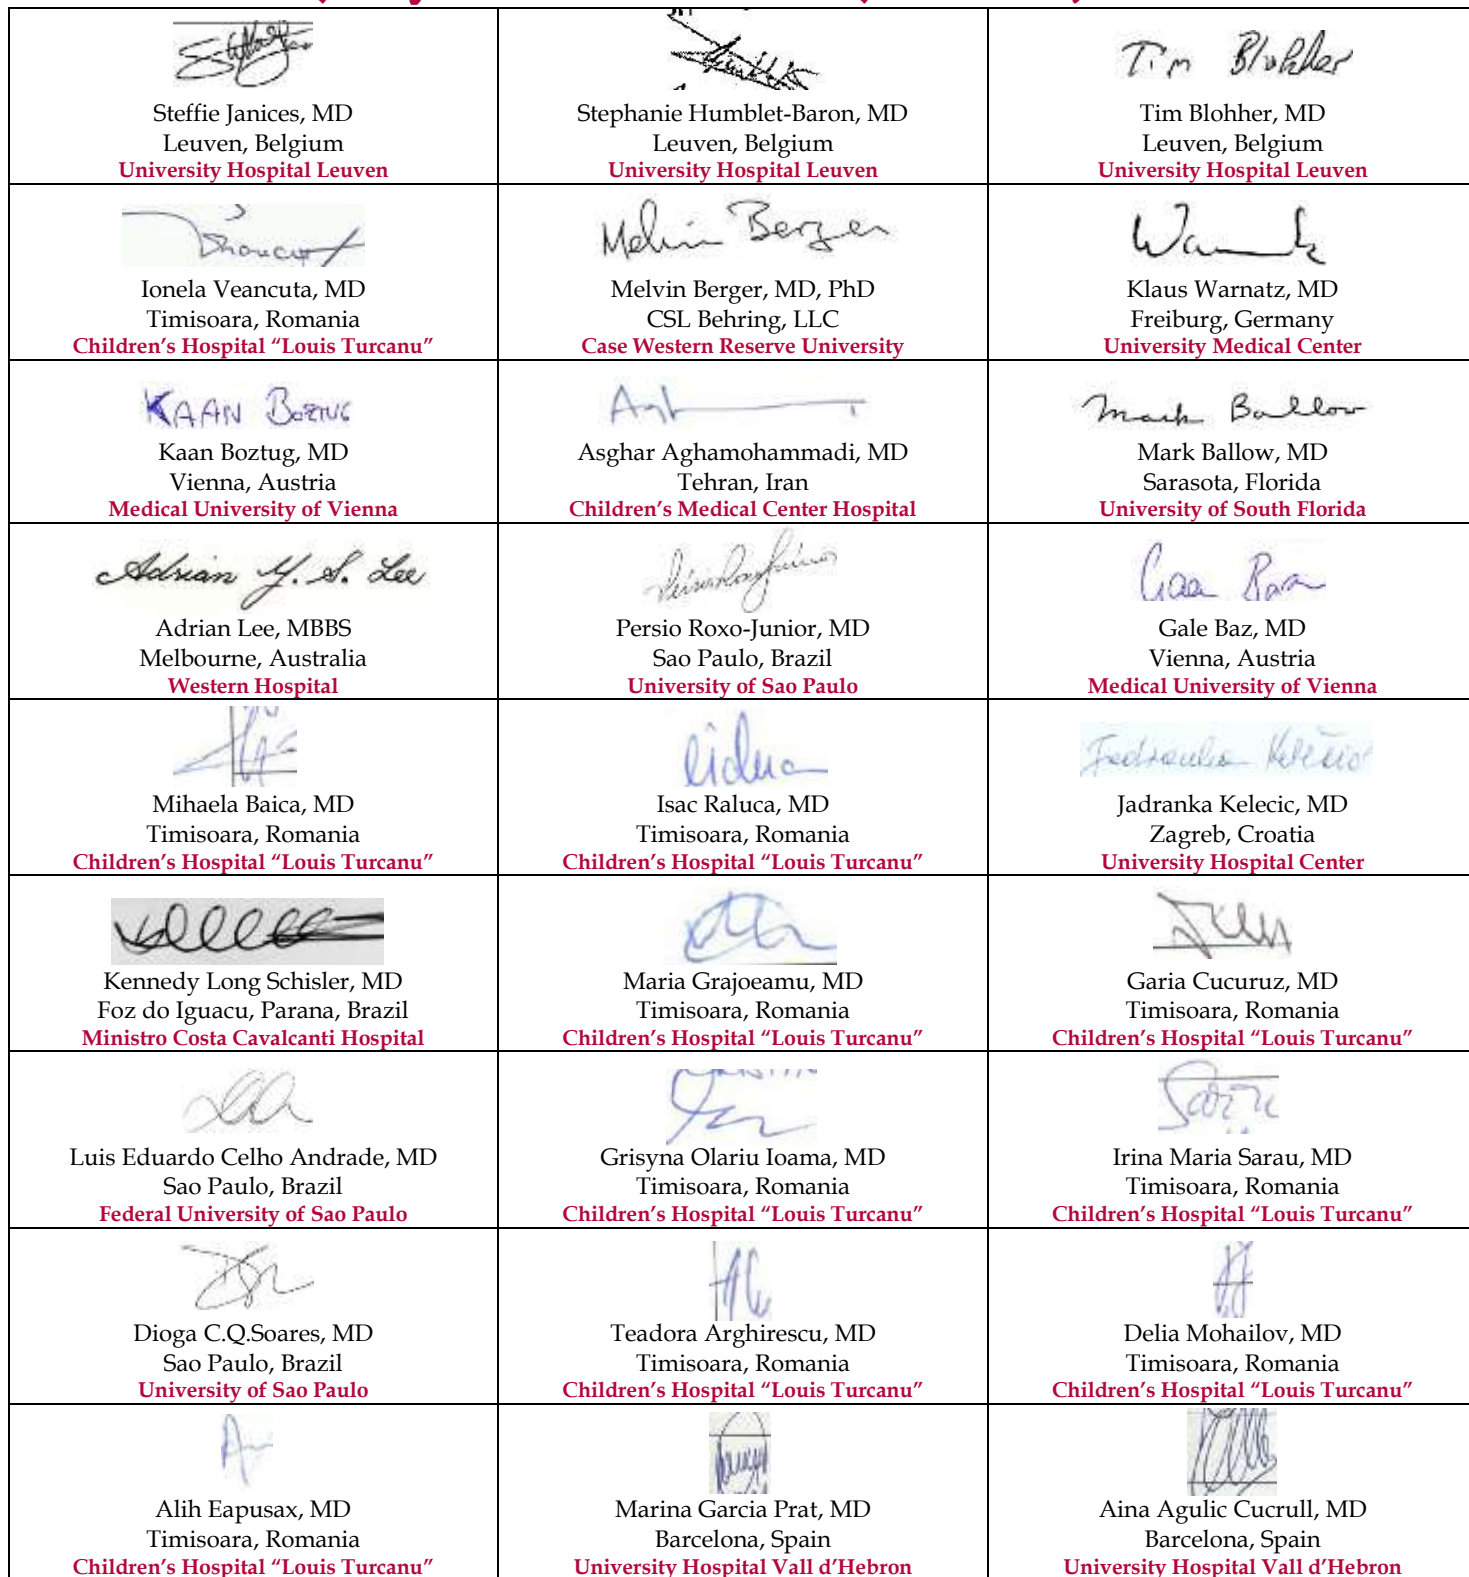 Steffie Janices, MD
Leuven, Belgium
University Hospital Leuven
Stephanie Humblet-Baron, MD
Leuven, Belgium
University Hospital Leuven
Tim Blohher
Tim Blohher, MD
Leuven, Belgium
University Hospital Leuven
Ionela Veancuta, MD
Timisoara, Romania
Children's Hospital “Louis Turcanu”
Melvin Berger
Melvin Berger, MD, PhD
CSL Behring, LLC
Case Western Reserve University
Klaus Warnatz, MD
Freiburg, Germany
University Medical Center
KAAN BOZTUG
Kaan Boztug, MD
Vienna, Austria
Medical University of Vienna
Asghar Aghamohammadi, MD
Tehran, Iran
Children's Medical Center Hospital
Mark Ballow
Mark Ballow, MD
Sarasota, Florida
University of South Florida
Adrian Y. S. Lee
Adrian Lee, MBBS
Melbourne, Australia
Western Hospital
Persio Roxo-Junior, MD
Sao Paulo, Brazil
University of Sao Paulo
Gale Baz, MD
Vienna, Austria
Medical University of Vienna
Mihaela Baica, MD
Timisoara, Romania
Children's Hospital “Louis Turcanu”
Isac Raluca, MD
Timisoara, Romania
Children's Hospital “Louis Turcanu”
Jadranka Kelecic, MD
Zagreb, Croatia
University Hospital Center
Kennedy Long Schisler, MD
Foz do Iguacu, Parana, Brazil
Ministro Costa Cavalcanti Hospital
Maria Grajoeamu, MD
Timisoara, Romania
Children's Hospital “Louis Turcanu”
Garia Cucuruz, MD
Timisoara, Romania
Children's Hospital “Louis Turcanu”
Luis Eduardo Celho Andrade, MD
Sao Paulo, Brazil
Federal University of Sao Paulo
Grisyna Olariu Ioama, MD
Timisoara, Romania
Children's Hospital “Louis Turcanu”
Irina Maria Sarau, MD
Timisoara, Romania
Children's Hospital “Louis Turcanu”
Dioga C.Q.Soares, MD
Sao Paulo, Brazil
University of Sao Paulo
Teadora Arghirescu, MD
Timisoara, Romania
Children's Hospital “Louis Turcanu”
Delia Mohailov, MD
Timisoara, Romania
Children's Hospital “Louis Turcanu”
Alih Eapusax, MD
Timisoara, Romania
Children's Hospital “Louis Turcanu”
Marina Garcia Prat, MD
Barcelona, Spain
University Hospital Vall d'Hebron
Aina Agulic Cucrull, MD
Barcelona, Spain
University Hospital Vall d'Hebron